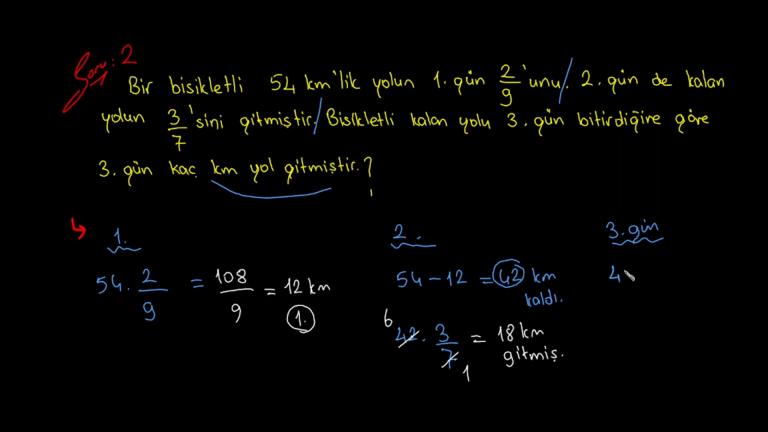 Soru: 2
Bir bisikletli 54 km'lik yolun 1. gün 2/9'unu, 2. gün de kalan
yolun 3/7'sini gitmiştir. Bisikletli kalan yolu 3. gün bitirdiğine göre
3. gün kaç km yol gitmiştir?
1.
54 . 2/9 = 108/9 = 12 km
1.
2.
54 - 12 = 42 km
kaldı.
6
42 . 3/7 = 18 km
gitmiş.
1
3. gün
4